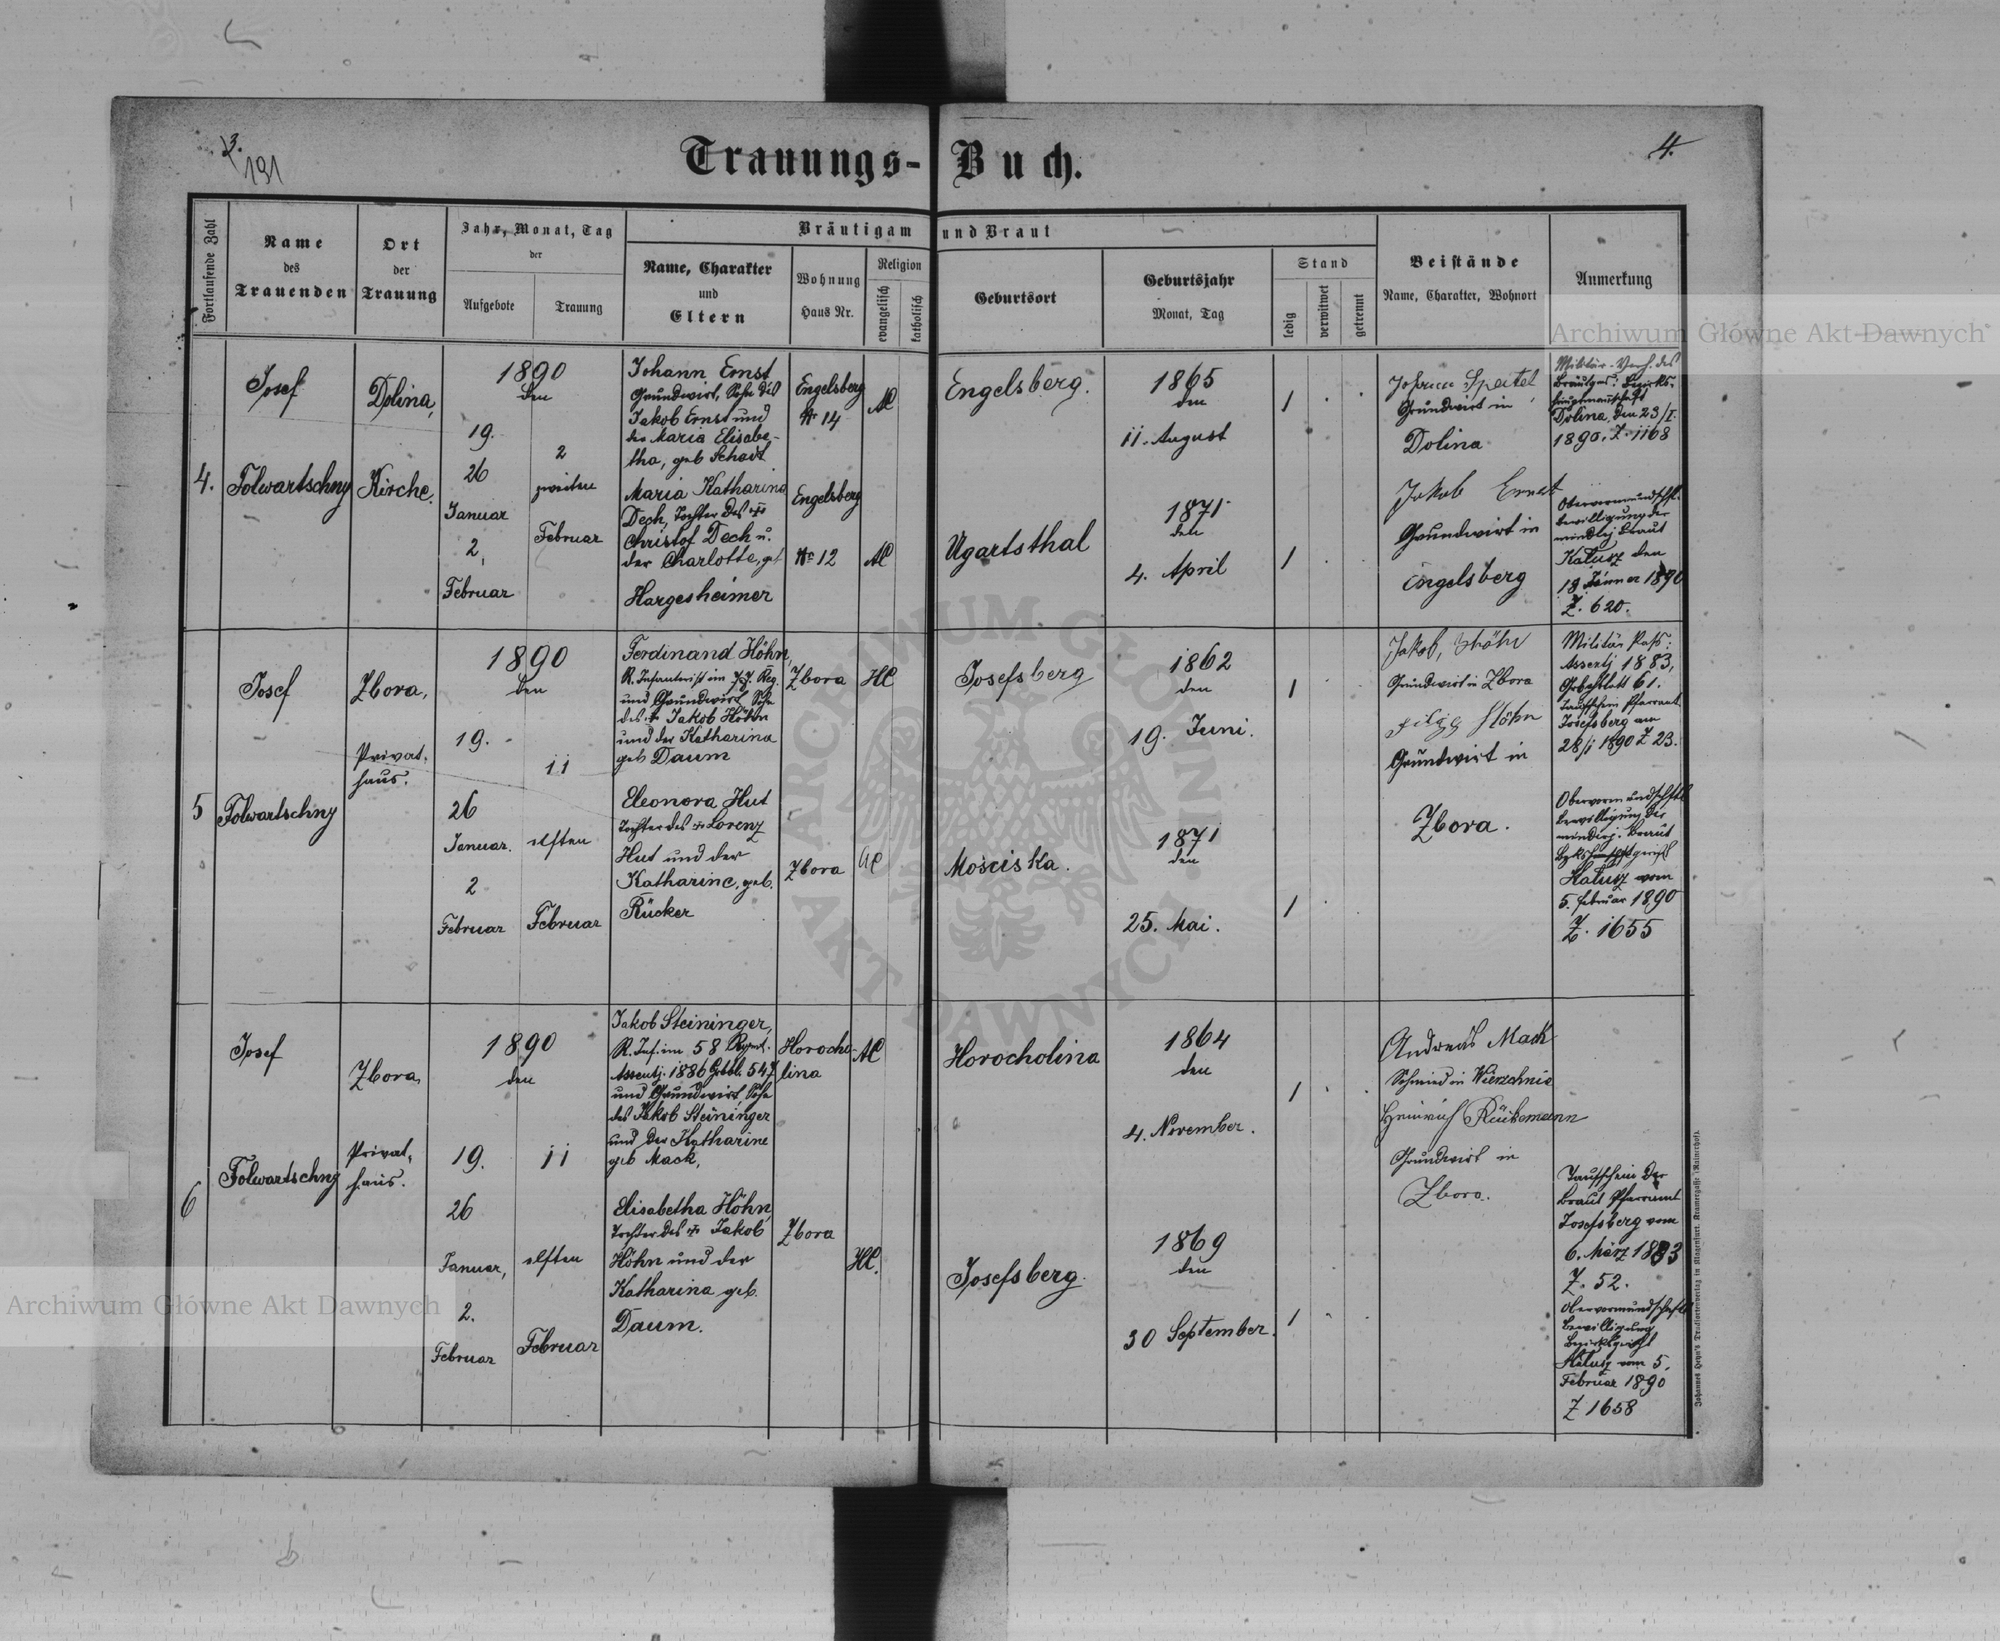 3.
191
4.
Trauungs-Buch.
Fortlaufende Zahl
Name
des
Trauenden
Ort
der
Trauung
Jahr, Monat, Tag
der
Aufgebote
Trauung
Bräutigam und Braut
Name, Charakter
und
Eltern
Wohnung
Haus Nr.
Religion
evangelisch
katholisch
Geburtsort
Geburtsjahr
Monat, Tag
Stand
ledig
verwitwet
getrennt
Beistände
Name, Charakter, Wohnort
Anmerkung
4.
Josef
Folwartschny
Dolina,
Kirche.
1890
den
19.
26
Januar
2,
Februar
2
zweiten
Februar
Johann Ernst
Grundwirt, Sohn des
Jakob Ernst und
der Maria Elisabe-
tha, geb Schadt
Engelsberg
Nr 14
AC
Engelsberg.
1865
den
11. August
1
Maria Katharina
Dech, Tochter des
Christof Dech u.
der Charlotte, geb
Hargesheimer
Engelsberg
Nr 12
AC
Ugartsthal
1871
den
4. April
1
Johann
Grundwirt in
Dolina
Jakob Ernst
Grundwirt in
Engelsberg
Militär- des
Bräutgs: Bezirks-
hauptmannschaft
Dolina, den 23/I
1890. Z. 1168
Obervormundschftl.
bewilligung der
mindrj Braut
Kalusz den
18 Jänner 1890
Z. 620.
5
Josef
Folwartschny
Zbora,
Privat-
haus.
1890
den
19.
26
Januar.
2
Februar
11
elften
Februar
Ferdinand Höhn,
R. Infanterist im 77. Reg.
und Grundwirt Sohn
des Jakob Höhn
und der Katharina
geb Daum
Zbora
HC
Josefsberg
1862
den
19. Juni.
1
Eleonora Hut
Tochter des Lorenz
Hut und der
Katharine, geb.
Rücker
Zbora
AC
Mosciska.
1871
den
25. Mai.
1
Jakob Höhn
Grundwirt in Zbora
Höhn
Grundwirt in
Zbora.
Militär Pass:
Assentj 1883,
Grbchblatt 61.
Taufschein Pfarramt
Josefsberg am
28/1 1890 Z 23.
Obervormundschftl
bewilligung der
mindrj. Braut
Kalusz vom
5. Februar 1890
Z. 1655
6
Josef
Folwartschny
Zbora,
Privat-
haus.
1890
den
19.
26
Januar,
2.
Februar
11
elften
Februar
Jakob Steininger,
R. Inf. im 58 Regmt.
Assentj. 1886 Grbbl. 547
und Grundwirt, Sohn
des Jakob Steininger
und der Katharine
geb Mack,
Horocho-
lina
AC
Horocholina
1864
den
4. November.
1
Elisabetha Höhn,
Tochter des Jakob
Höhn und der
Katharina geb.
Daum.
Zbora
HC.
Josefsberg.
1869
den
30 September.
1
Andreas Mack
Schmied in Wierzchnia
Heinrich Rückemann
Grundwirt in
Zbora.
Taufschein der
Braut Pfarramt
Josefsberg vom
6. März 1883
Z. 52.
Obervormundschaftl
bewilligung
Bezirksgericht
Kalusz vom 5.
Februar 1890
Z 1658
Johannes Heyn's Drucksortenverlag in Klagenfurt. Kramergasse (Rainerhof).
Archiwum Główne Akt Dawnych
Archiwum Główne Akt Dawnych
ARCHIWUM GŁÓWNE AKT DAWNYCH